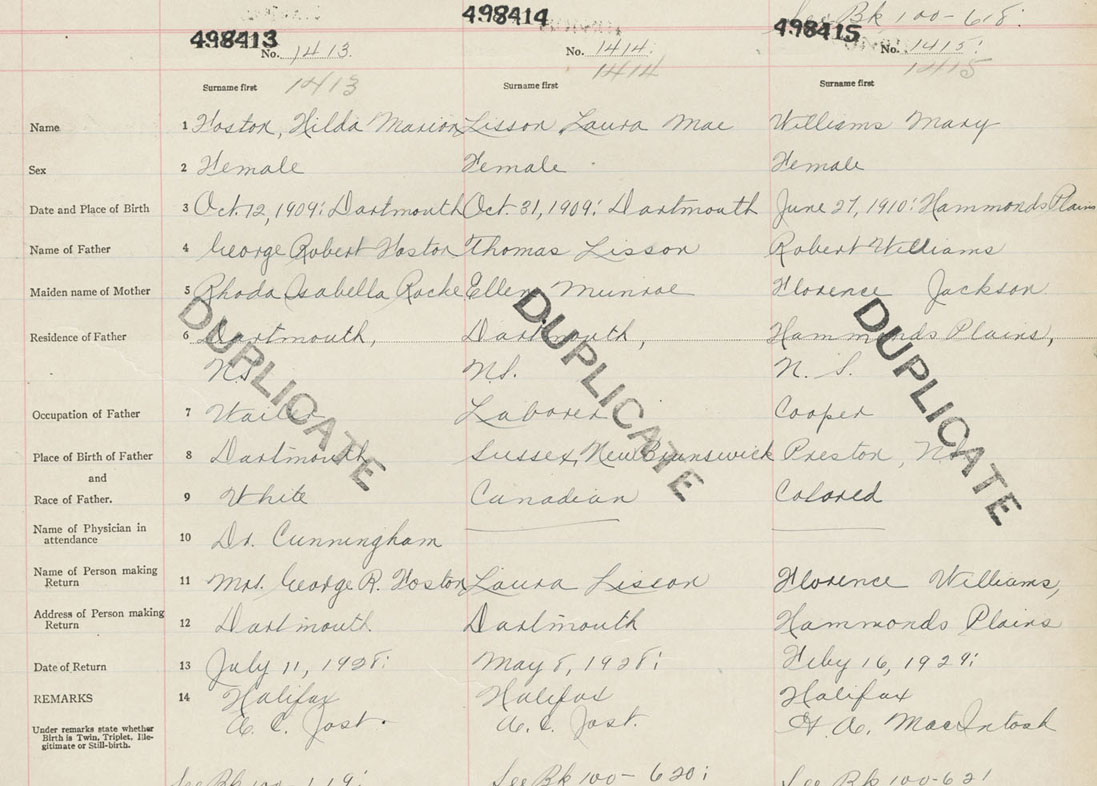 See Bk 100-618:
498413 498414 498415
No. 1413. No. 1414. No. 1415:
1413 1414 1415
Surname first Surname first Surname first
Name 1 Foston, Hilda Marion Lisson Laura Mae Williams Mary
Sex 2 Female Female Female
Date and Place of Birth 3 Oct. 12, 1909: Dartmouth Oct. 31, 1909: Dartmouth June 27, 1910: Hammonds Plains
Name of Father 4 George Robert Foston Thomas Lisson Robert Williams
Maiden name of Mother 5 Rhoda Isabella Roche Ellen Munroe Florence Jackson
Residence of Father 6 Dartmouth, Dartmouth, Hammonds Plains,
N.S. N.S. N. S.
DUPLICATE DUPLICATE DUPLICATE
Occupation of Father 7 Waiter Laborer Cooper
Place of Birth of Father 8 Dartmouth Sussex, New Brunswick Preston, N.S.
and
Race of Father. 9 White Canadian Colored
Name of Physician in
attendance 10 Dr. Cunningham
Name of Person making
Return 11 Mrs. George R. Foston Laura Lisson Florence Williams,
Address of Person making
Return 12 Dartmouth Dartmouth Hammonds Plains
Date of Return 13 July 11, 1928: May 8, 1928: Feby 16, 1929:
REMARKS 14 Halifax Halifax Halifax
A. C. Jost. A. C. Jost. MacIntosh
Under remarks state whether
Birth is Twin, Triplet, Ille-
gitimate or Still-birth.
See Bk 100- 619: See Bk 100- 620: See Bk 100-621